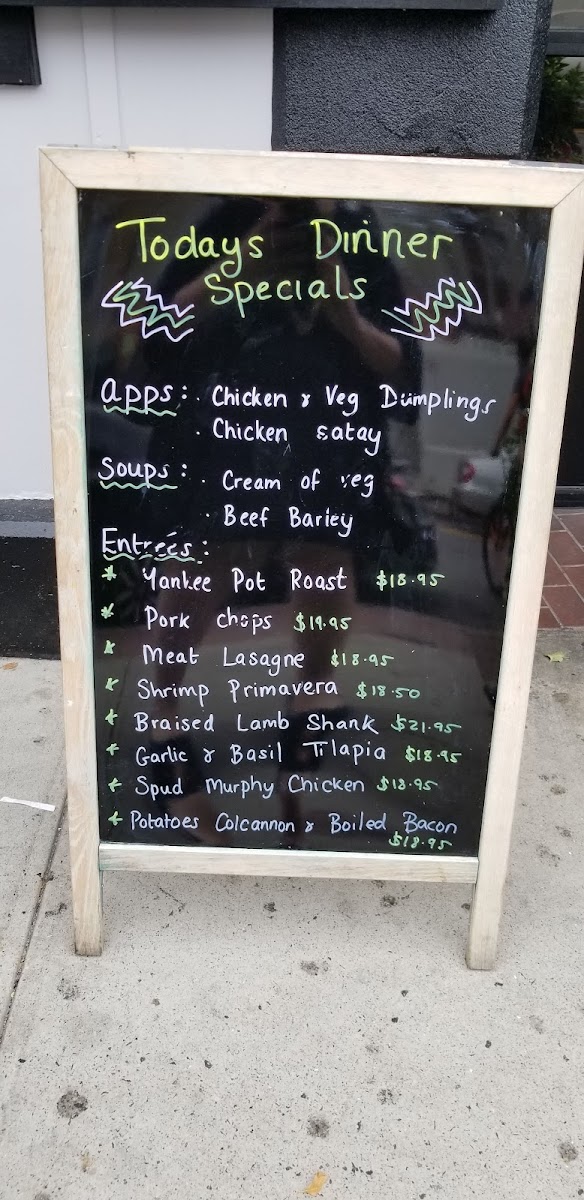 Todays Dinner
Specials
apps: · Chicken & Veg Dumplings
· Chicken satay
Soups: · Cream of veg
· Beef Barley
Entreés:
* Yankee Pot Roast $18.95
* Pork chops $19.95
* Meat Lasagne $18.95
* Shrimp Primavera $18.50
* Braised Lamb Shank $21.95
* Garlic & Basil Tilapia $18.95
* Spud Murphy Chicken $18.95
* Potatoes Colcannon & Boiled Bacon
$18.95